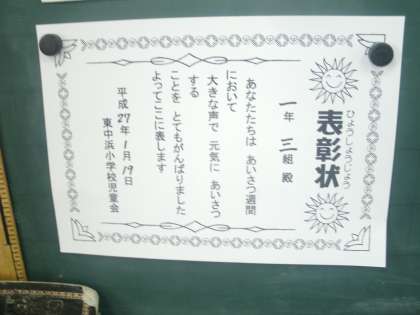 ひょうしょうじょう
表彰状
一年 三組 殿
あなたたちは あいさつ週間
において
大きな声で 元気に あいさつ
する
ことを とてもがんばりました
よってここに表します
平成27年1月19日
東中浜小学校児童会